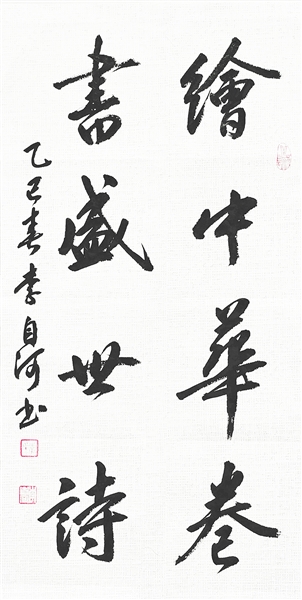 繪中華卷
書盛世詩
乙巳春李自河书